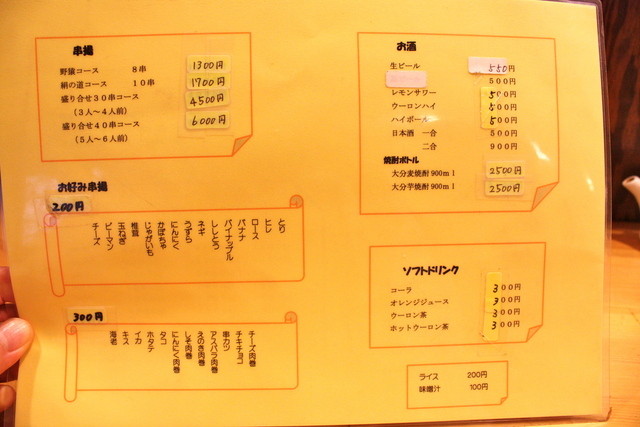 串揚
野猿コース 8串 1300円
絹の道コース 10串 1700円
盛り合せ30串コース 4500円
(3人〜4人前)
盛り合せ40串コース 6000円
(5人〜6人前)
お好み串揚
200円
とり
ヒレ
ロース
バナナ
パイナップル
ししとう
ネギ
うずら
にんにく
かぼちゃ
じゃがいも
椎茸
玉ねぎ
ピーマン
チーズ
300円
チーズ肉巻
チキチョコ
串カツ
アスパラ肉巻
えのき肉巻
しそ肉巻
にんにく肉巻
タコ
ホタテ
イカ
キス
海老
お酒
生ビール 550円
500円
レモンサワー 500円
ウーロンハイ 500円
ハイボール 500円
日本酒 一合 500円
二合 900円
焼酎ボトル
大分麦焼酎900ml 2500円
大分芋焼酎900ml 2500円
ソフトドリンク
コーラ 300円
オレンジジュース 300円
ウーロン茶 300円
ホットウーロン茶 300円
ライス 200円
味噌汁 100円